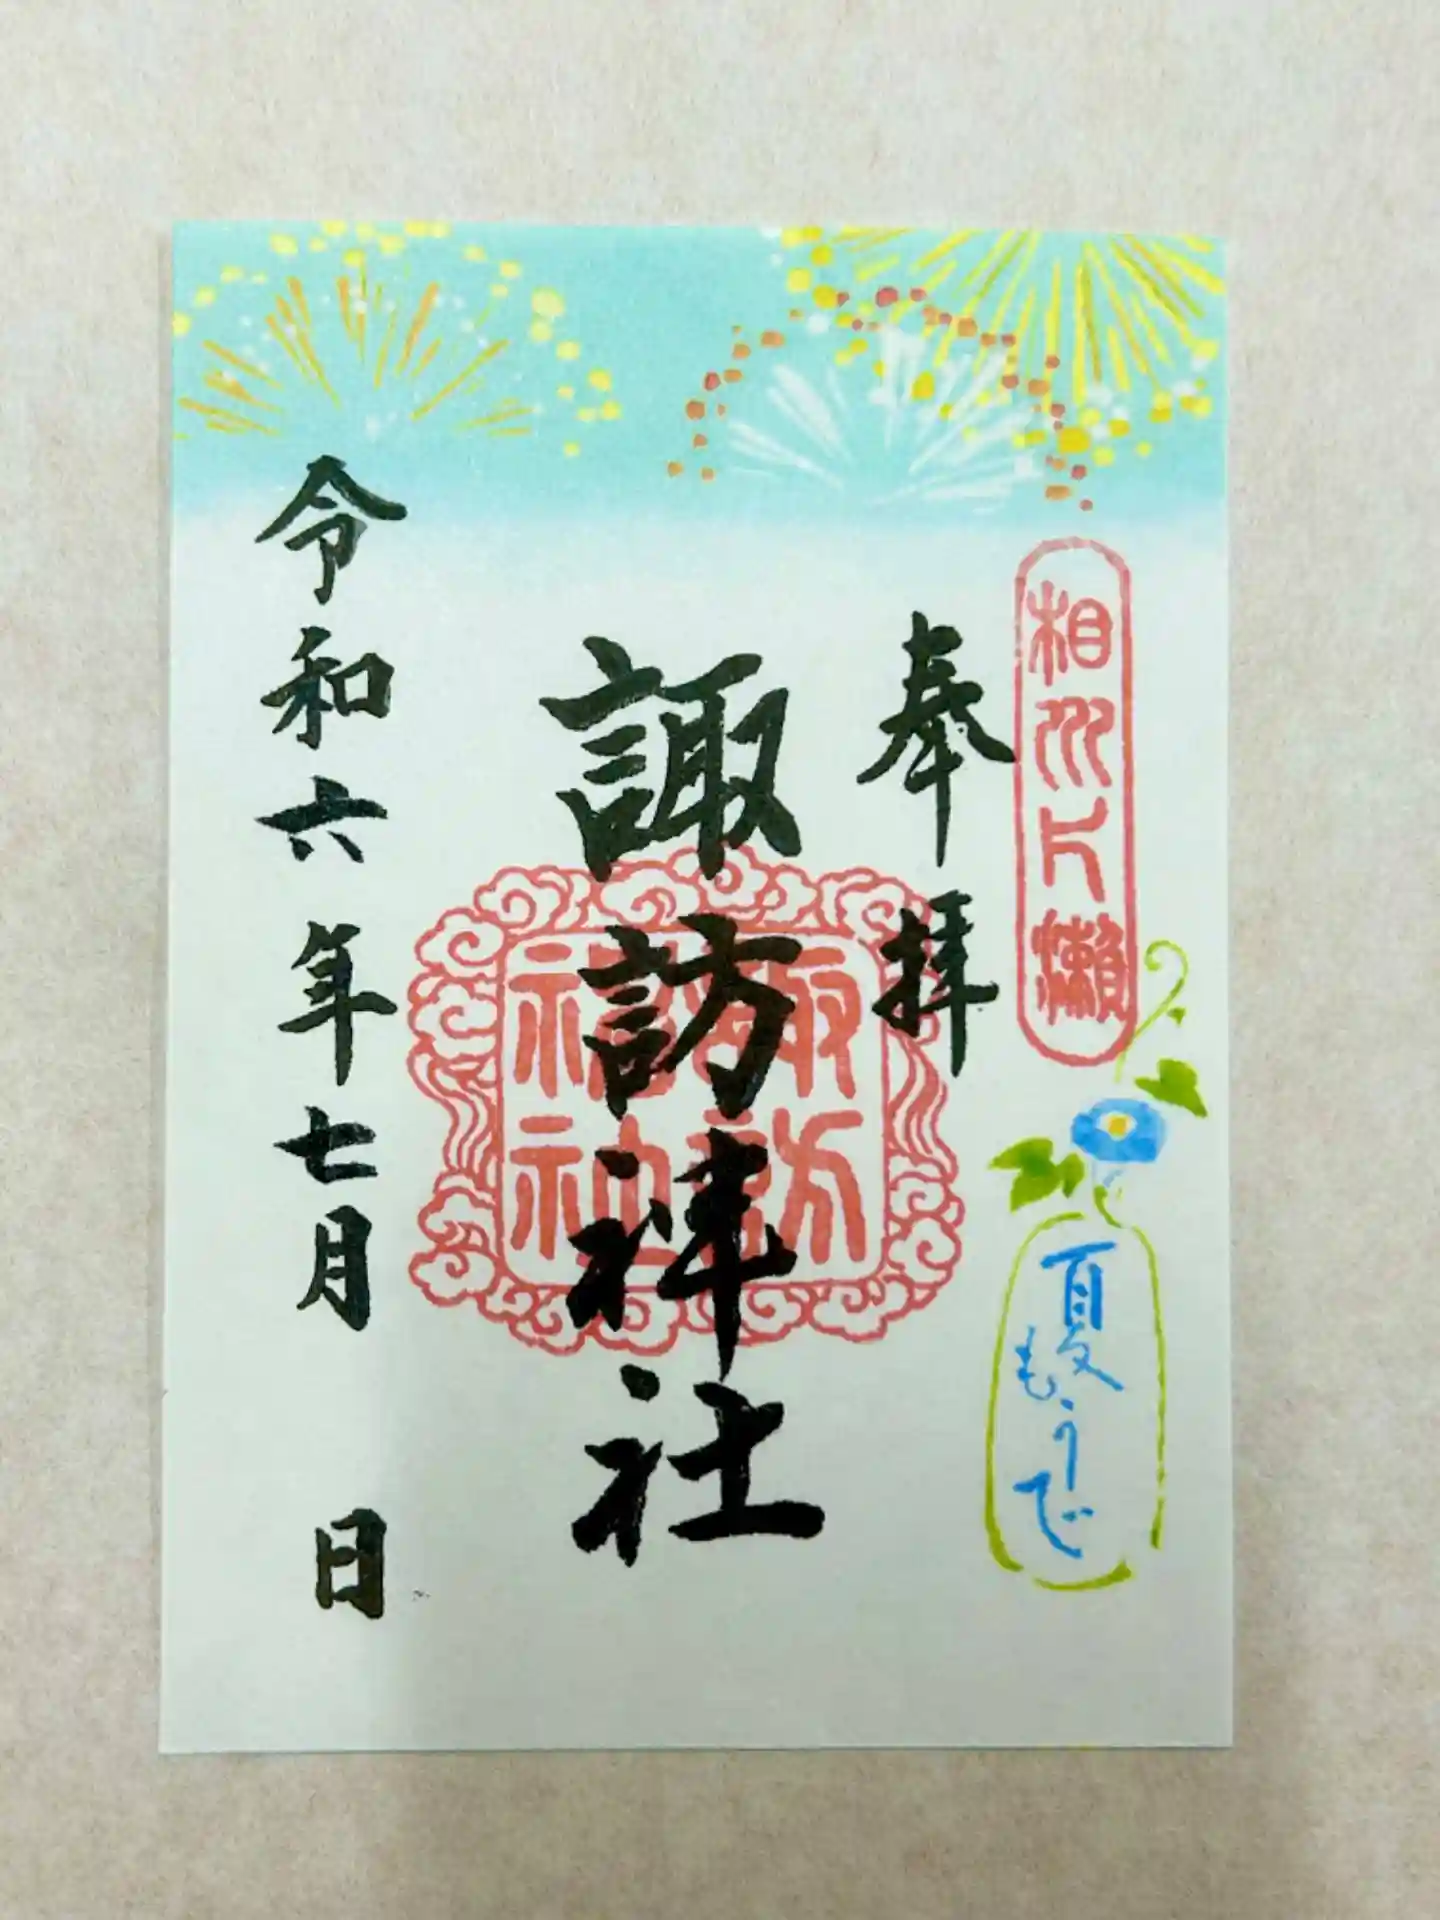 相州片瀬
奉拝
夏もうで
諏訪神社
諏訪
神社
令和六年七月　日